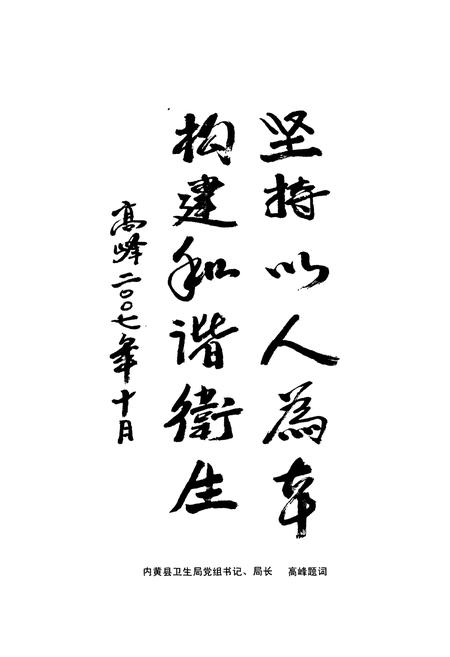 坚持以人為本
构建和谐衛生
高峰二〇〇七年十月
内黄县卫生局党组书记、局长 高峰题词